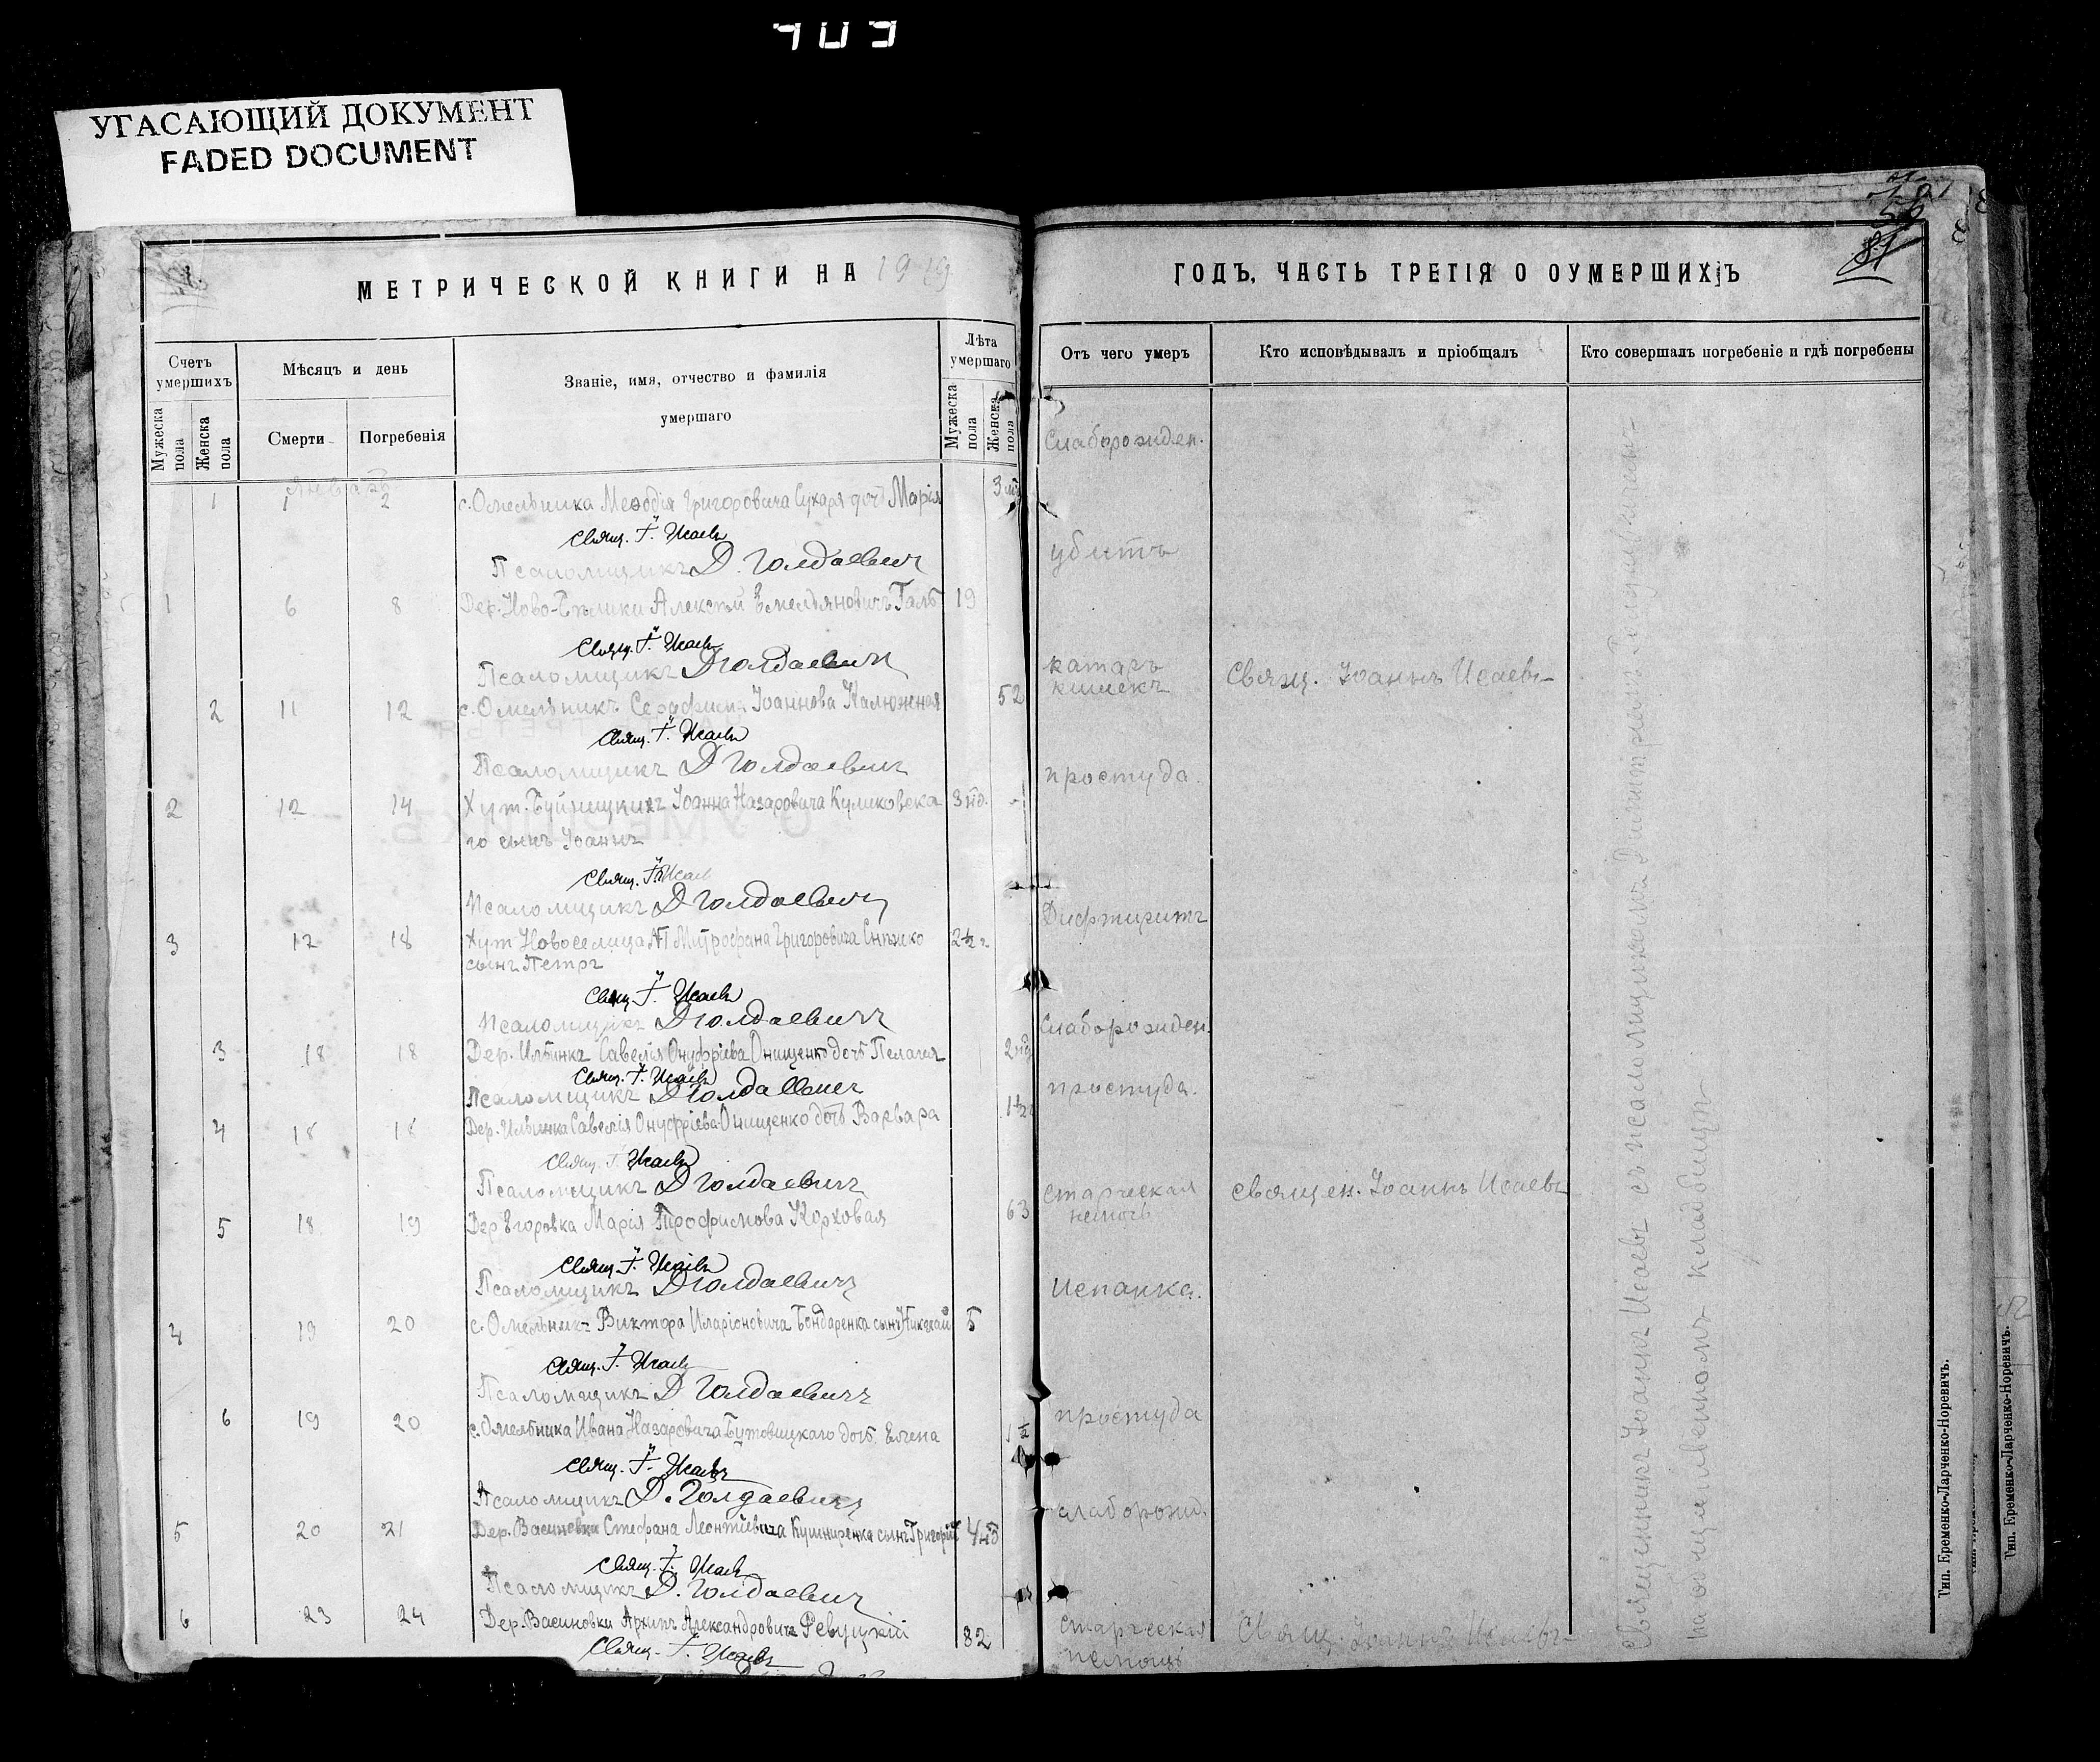 403
УГАСАЮЩИЙ ДОКУМЕНТ
FADED DOCUMENT
МЕТРИЧЕСКОЙ КНИГИ НА 1919
Счетъ умершихъ
Мужеска пола
Женска пола
Мѣсяцъ и день
Смерти
Погребенія
Званіе, имя, отчество и фамилія
умершаго
Лѣта умершаго
Мужеска пола
Женска пола
Январь
1 1 2 с. Омельника Меѳодія Григоровича Сухаря дочь Марія
Свящ. І. Исаевъ
Псаломщикъ Д. Голдаевичъ
1 6 8 Дер. Ново- Алексѣй Емельяновичъ 19
Свящ. І. Исаевъ
Псаломщикъ Д Голдаевичъ
2 11 12 с. Омельникъ Серафима Іоаннова Калюжная 52
Свящ. І. Исаевъ
Псаломщикъ Д Голдаевичъ
2 12 14 Хут. Іоанна Назаровича Куликовска 3 нед.
го сынъ Іоаннъ
Свящ. І. Исаев
Псаломщикъ Д Голдаевичъ
3 12 18 Хут Новоселица №1 Митрофана Григоровича 2½ г.
сынъ Петръ
Свящ. І. Исаевъ
Псаломщикъ Д Голдаевичъ
3 18 18 Дер. Ильинка Савелія Онуфріева Онищенко дочь Пелагея
Свящ. І. Исаевъ
Псаломщикъ Д Голдаевичъ
4 18 18 Дер. Ильинка Савелія Онуфріева Онищенко дочь Варвара 1½
Свящ. І. Исаевъ
Псаломщикъ Д Голдаевичъ
5 18 19 Дер Егоровка Марія Трофимова Корховая 63
Свящ. І. Исаевъ
Псаломщикъ Д Голдаевичъ
4 19 20 с. Омельник Виктора Иларіоновича Бондаренка сынъ Николай 5
Свящ. І. Исаевъ
Псаломщикъ Д Голдаевичъ
6 19 20 с. Омельника Ивана Назаровича Бутовицкаго дочь Елена
Свящ. І. Исаевъ
Псаломщикъ Д. Голдаевичъ
5 20 21 Дер. Васиновки Стефана Леонтіевича Кушниренка сынъ Григорій
Свящ. І. Исаевъ
Псаломщикъ Д. Голдаевичъ
6 23 24 Дер. Васиновки Архипъ Александровичъ Ревуцкій 82
Свящ. І. Исаевъ
81
ГОДЪ, ЧАСТЬ ТРЕТІЯ О ОУМЕРШИХЪ
Отъ чего умеръ
Кто исповѣдывалъ и пріобщалъ
Кто совершалъ погребеніе и гдѣ погребены
Слаборожден.
убитъ
катаръ
кишекъ
Свящ. Іоаннъ Исаевъ
простуда.
Дифтиритъ
Слаборожден.
простуда.
старческая
немочь
Священ. Іоаннъ Исаевъ
Испанка.
простуда
слаборожд.
старческая
немощь
Свящ. Іоаннъ Исаевъ
Священникъ Іоаннъ Исаевъ съ псаломщикомъ Димитріемъ Голдаевичемъ
на общественномъ кладбищѣ
Тип. Еременко-Ларченко-Норевичъ.
Тип. Еременко-Ларченко-Норевичъ.